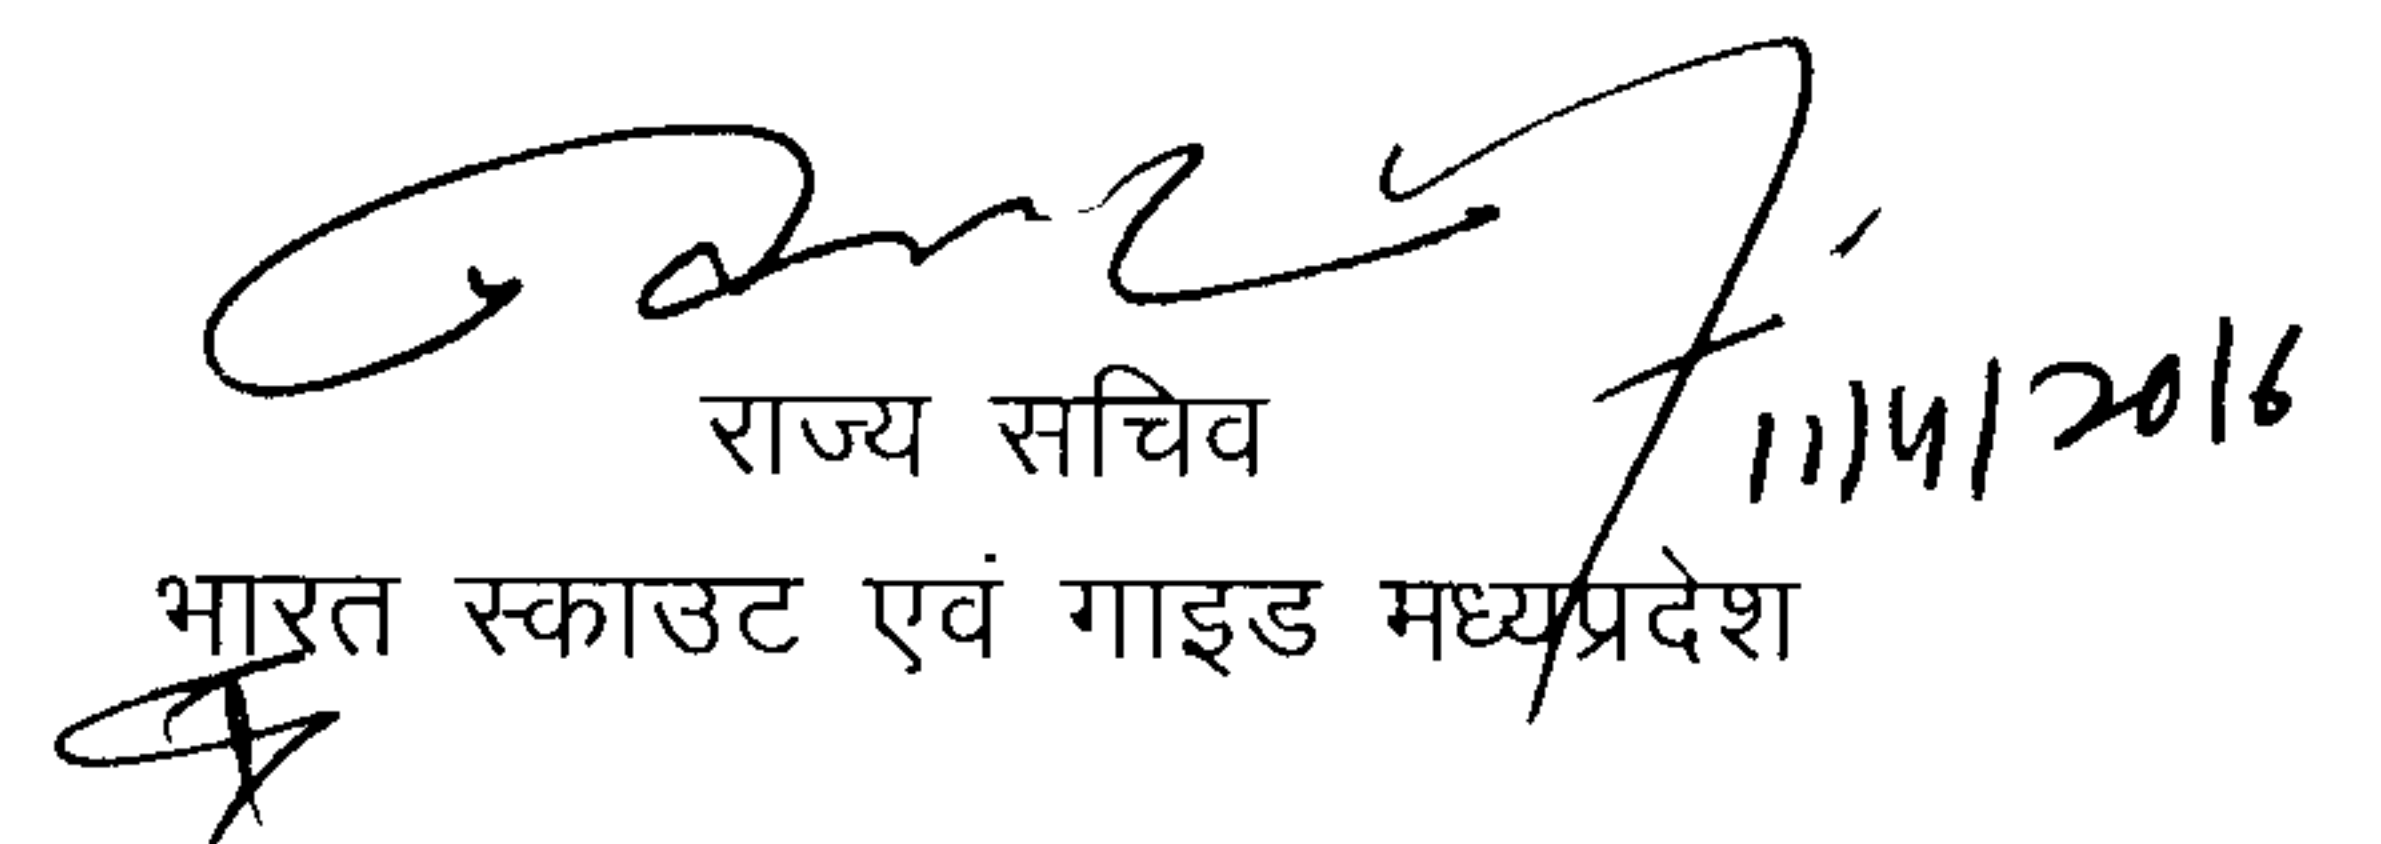 राज्य सचिव
11/4/2016
भारत स्काउट एवं गाइड मध्यप्रदेश